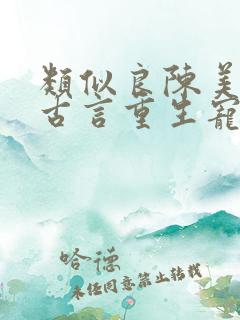 類似良陳美
古言重生寵
哈德
未經同意禁止轉載